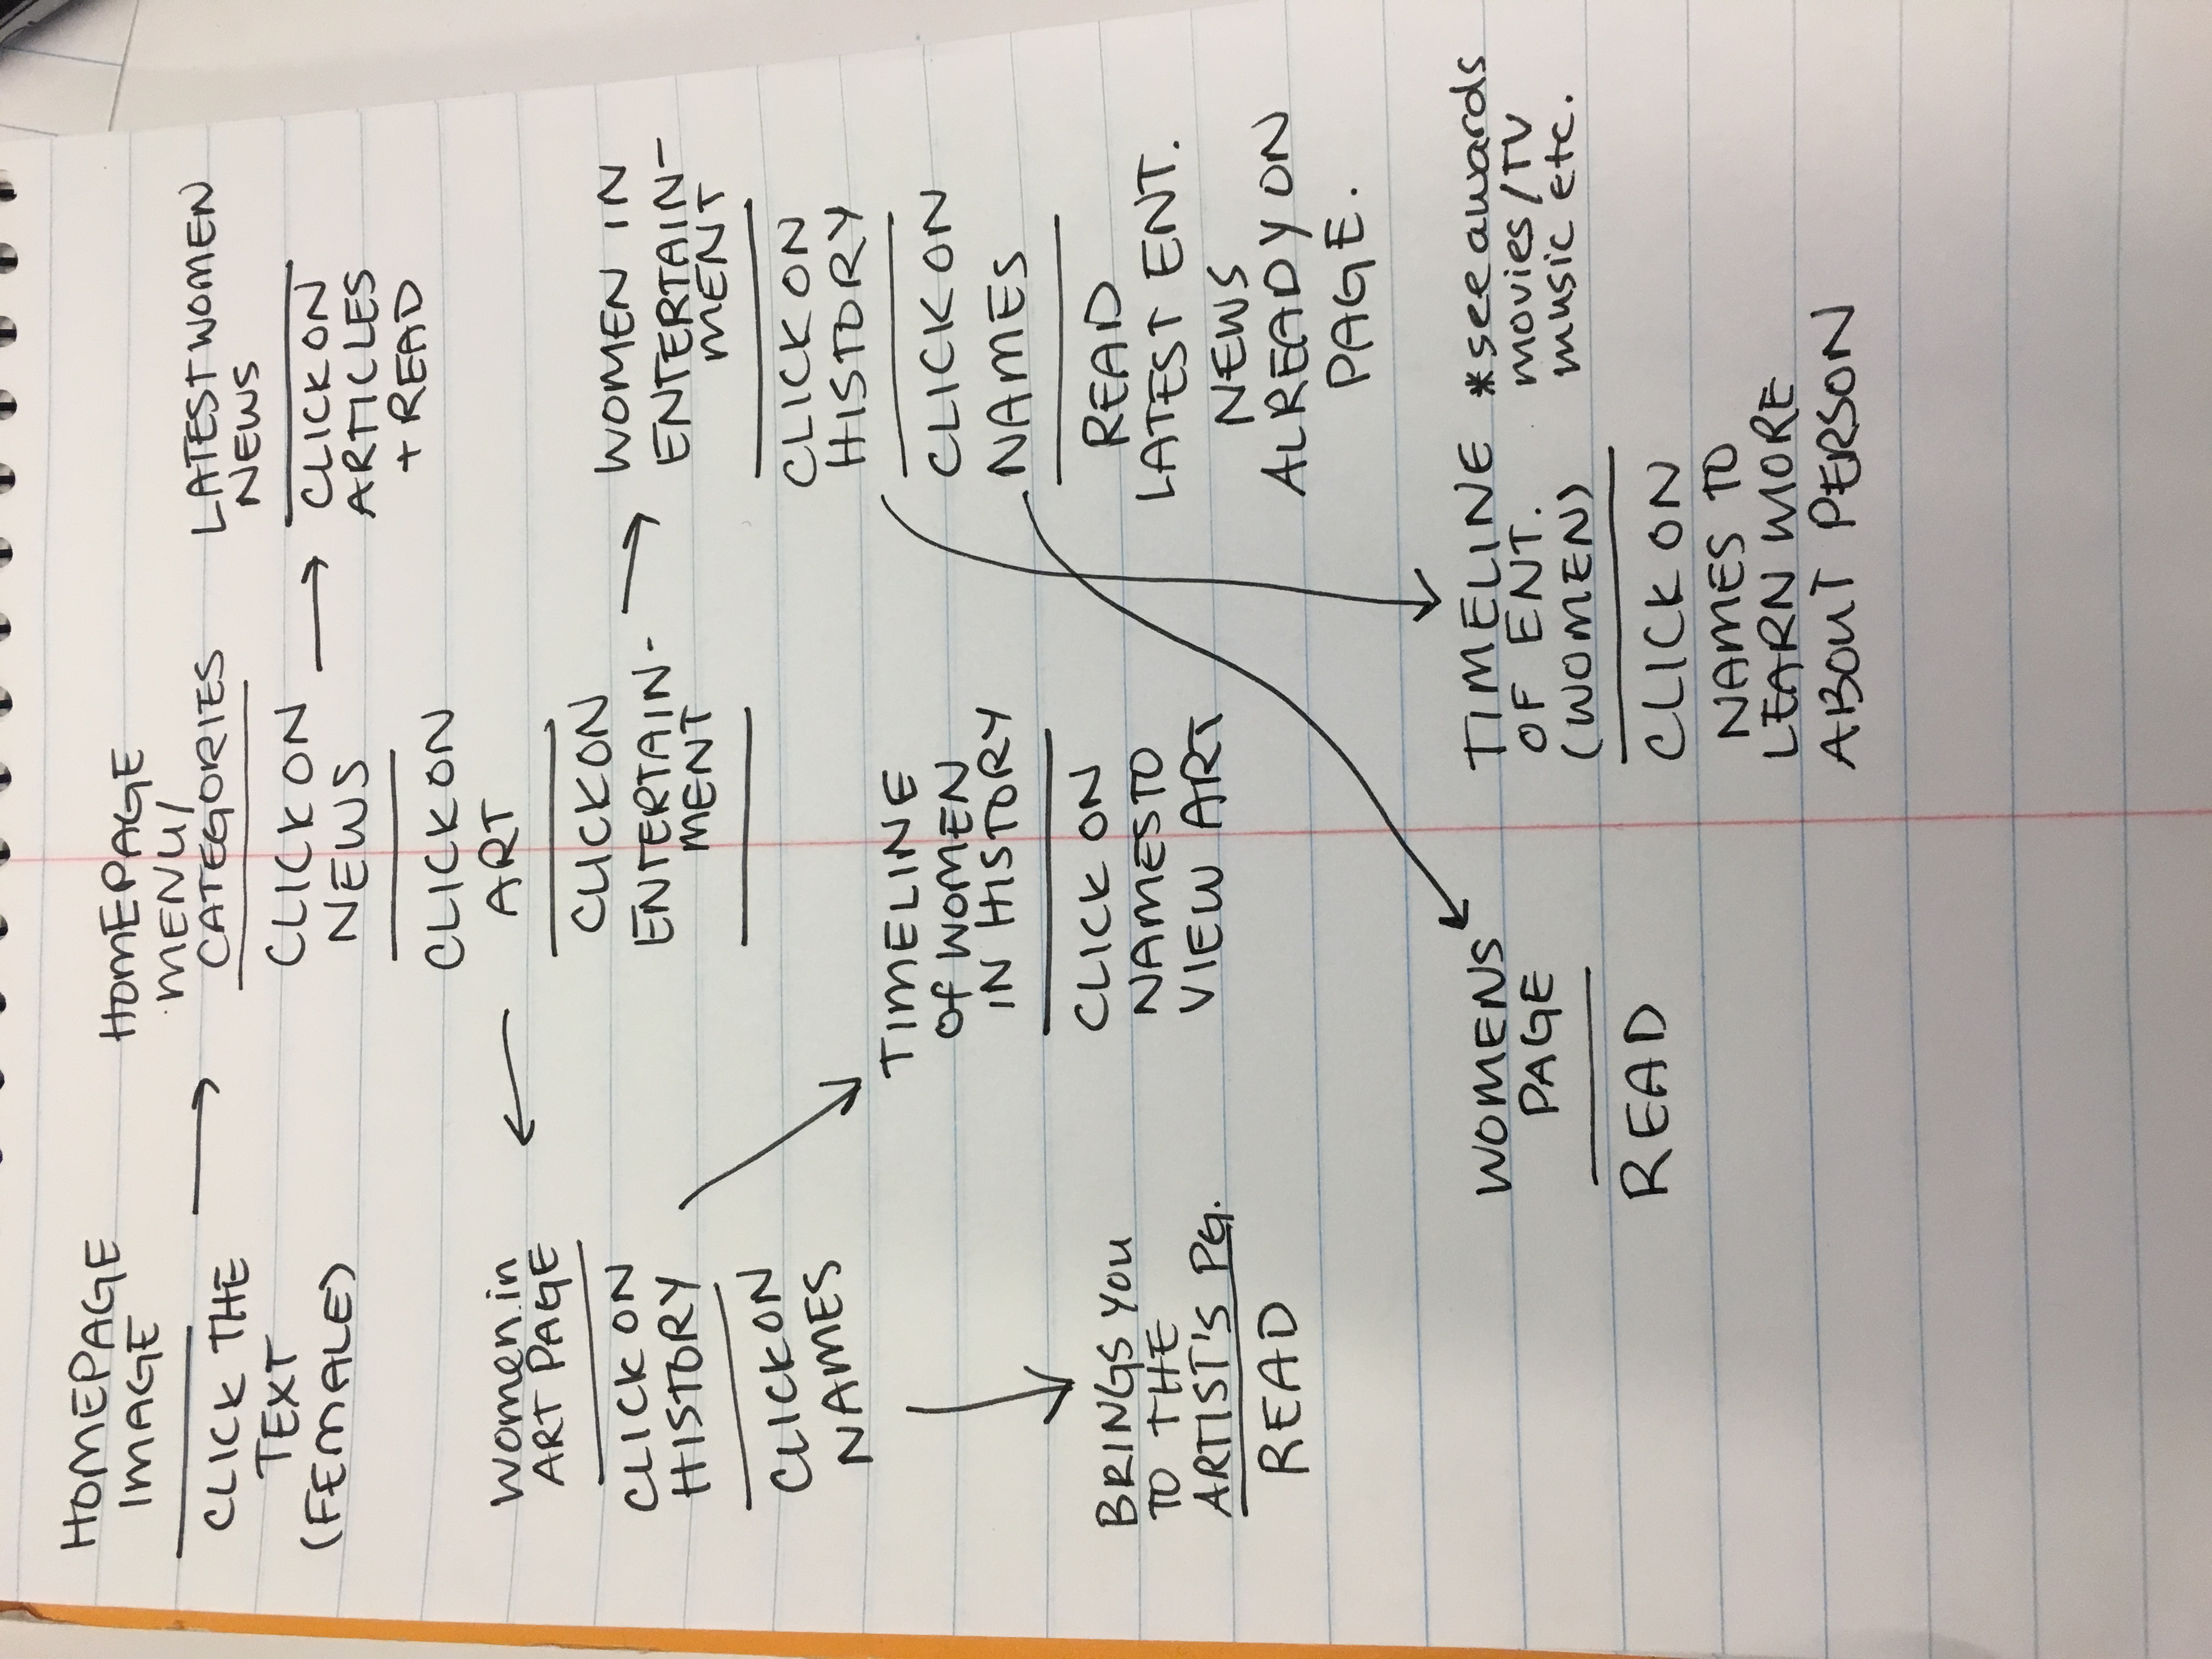 HOMEPAGE
IMAGE
CLICK THE
TEXT
(FEMALE)
HOMEPAGE
MENU/
CATEGORIES
CLICK ON
NEWS
CLICK ON
ART
CLICK ON
ENTERTAIN-
MENT
LATEST WOMEN
NEWS
CLICK ON
ARTICLES
+ READ
Women in
ART PAGE
CLICK ON
HISTORY
CLICK ON
NAMES
BRINGS YOU
TO THE
ARTIST'S PG.
READ
TIMELINE
Of WOMEN
IN HISTORY
CLICK ON
NAMES TO
VIEW ART
WOMEN IN
ENTERTAIN-
MENT
CLICK ON
HISTORY
CLICK ON
NAMES
READ
LATEST ENT.
NEWS
ALREADY ON
PAGE.
WOMENS
PAGE
READ
TIMELINE
OF ENT.
(WOMEN)
CLICK ON
NAMES TO
LEARN MORE
ABOUT PERSON
*see awards
movies/TV
music etc.